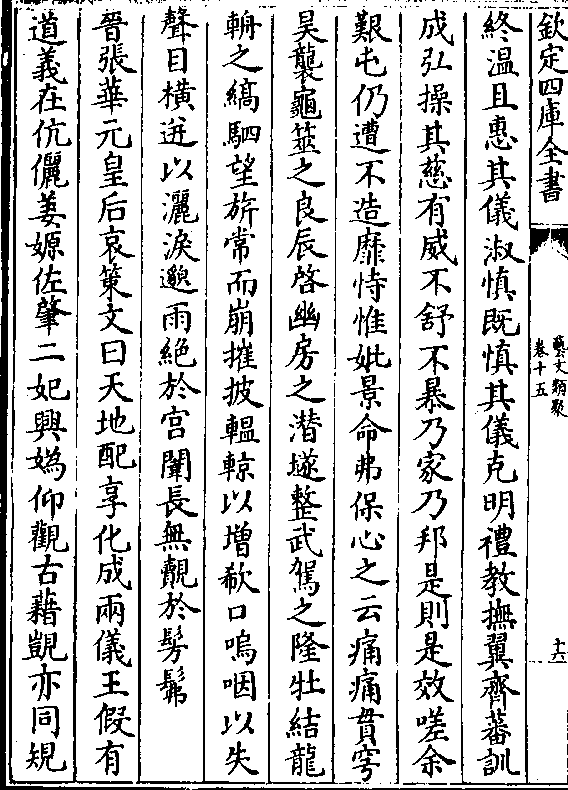 欽定四庫全書
藝文類聚
卷十五
十六
終溫且惠其儀淑慎既慎其儀克明禮教撫翼齊蕃訓
成弘操其慈有威不舒不暴乃家乃邦是則是效嗟余
艱屯仍遭不造靡恃惟妣景命弗保心之云痛痛貫穹
昊襲龜筮之良辰啓幽房之潜墜整武駕之隆牡結龍
輈之縞駟望旂常而崩摧披轀輬以增欷口嗚咽以失
聲目橫迸以灑淚邈雨絶於宫闈長無覿於髣髴
晉張華元皇后哀策文曰天地配享化成兩儀王假有
道義在伉儷姜嫄佐肇二妃興媯仰觀古籍覬亦同規